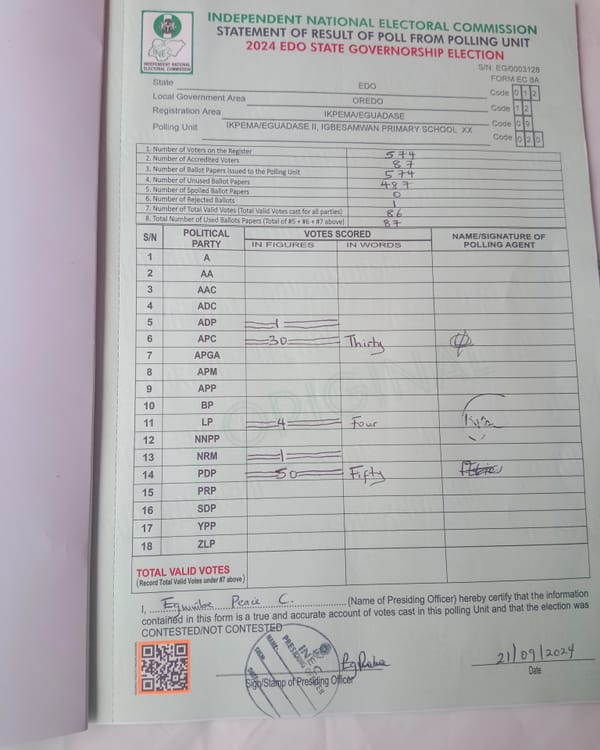 INDEPENDENT NATIONAL ELECTORAL COMMISSION
STATEMENT OF RESULT OF POLL FROM POLLING UNIT
2024 EDO STATE GOVERNORSHIP ELECTION
INEC
INDEPENDENT NATIONAL
ELECTORAL COMMISSION
S/N: EG/0003128
FORM EC 8A
State EDO Code 0 1 2
Local Government Area OREDO Code 1 2
Registration Area IKPEMA/EGUADASE Code 0 9
Polling Unit IKPEMA/EGUADASE II, IGBESAMWAN PRIMARY SCHOOL XX Code 0 2 0
1. Number of Voters on the Register 574
2. Number of Accredited Voters 87
3. Number of Ballot Papers Issued to the Polling Unit 574
4. Number of Unused Ballot Papers 487
5. Number of Spoiled Ballot Papers 0
6. Number of Rejected Ballots 1
7. Number of Total Valid Votes (Total Valid Votes cast for all parties) 86
8. Total Number of Used Ballots Papers (Total of #5 + #6 + #7 above) 87
S/N POLITICAL PARTY VOTES SCORED NAME/SIGNATURE OF POLLING AGENT
IN FIGURES IN WORDS
1 A
2 AA
3 AAC
4 ADC
5 ADP 1
6 APC 30 Thirty
7 APGA
8 APM
9 APP
10 BP
11 LP 4 Four
12 NNPP
13 NRM 1
14 PDP 50 Fifty
15 PRP
16 SDP
17 YPP
18 ZLP
ORIGINAL
TOTAL VALID VOTES
(Record Total Valid Votes under #7 above)
I, Peace C. (Name of Presiding Officer) hereby certify that the information
contained in this form is a true and accurate account of votes cast in this polling Unit and that the election was
CONTESTED/NOT CONTESTED
INEC
PRESIDING OFFICER
21/09/2024
Sign/Stamp of Presiding Officer Date